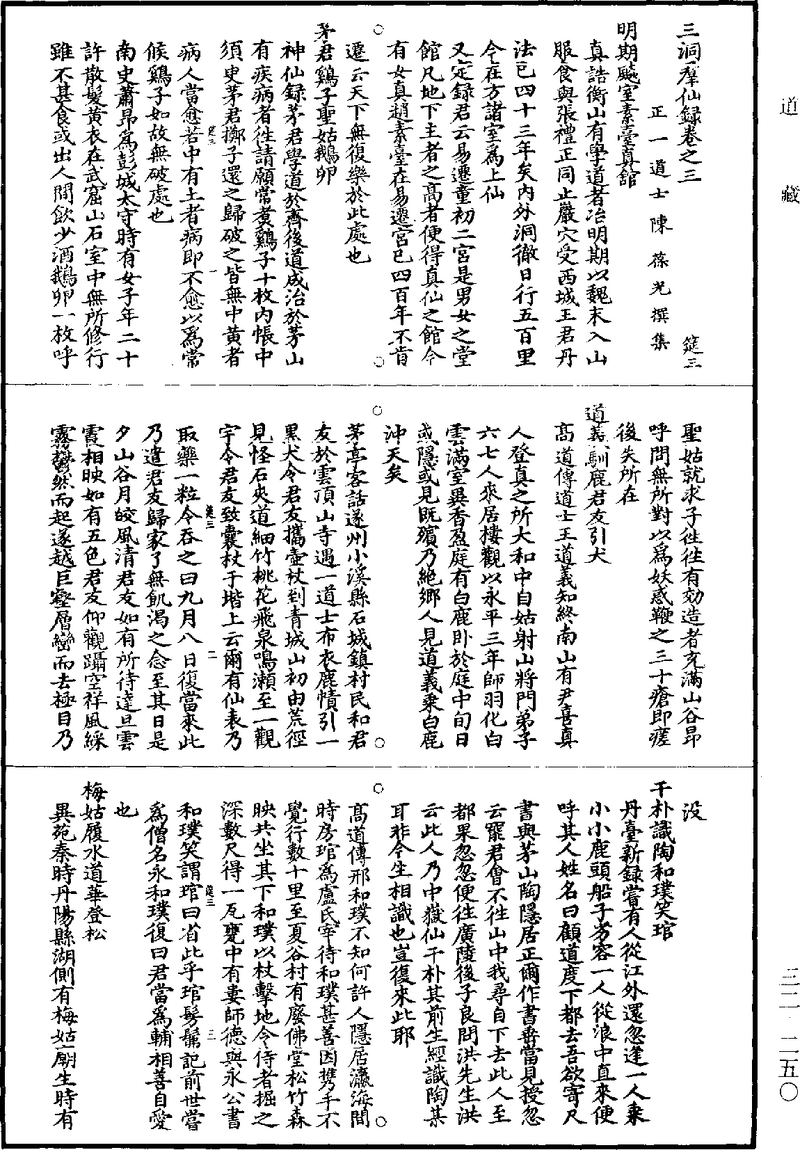 道藏
三二·二五〇
三洞羣仙録卷之三　筵三
正一道士陳葆光撰集
明期飇室素臺真館
真誥衡山有學道者冶明期以魏末入山
服食與張禮正同止巖穴受西城王君丹
法已四十三年矣內外洞徹日行五百里
今在方諸室為上仙
又定録君云易遷童初二宮是男女之堂
館凡地下主者之高者便得真仙之館今
有女真趙素臺在易遷宮已四百年不肯
遷云天下無復樂於此處也
茅君鷄子聖姑鵝卵
神仙録茅君學道於齊後道成治於茅山
有疾病者徃請願常煮鷄子十枚內帳中
須臾茅君擲子還之歸破之皆無中黃者
病人當愈若中有土者病即不愈以為常
候鷄子如故無破處也
南史蕭昂為彭城太守時有女子年二十
許散髮黃衣在武窟山石室中無所修行
雖不甚食或出人間飲少酒鵝卵一枚呼
聖姑就求子徃徃有効造者充滿山谷昂
呼問無所對以為妖惑鞭之三十瘡即瘥
後失所在
道義馴鹿君友引犬
高道傳道士王道義知終南山有尹喜真
人登真之所大和中自姑射山將門弟子
六七人來居樓觀以永平三年師羽化白
雲滿室異香盈庭有白鹿卧於庭中旬日
或隱或見既殯乃絕鄉人見道義乘白鹿
沖天矣
茅亭客話遂州小溪縣石城鎮村民和君
友於雲頂山寺遇一道士布衣鹿幘引一
黑犬令君友攜壺杖到青城山初由荒徑
見怪石夾道細竹桃花飛泉鳴瀨至一觀
宇令君友致囊杖于堦上云爾有仙表乃
取藥一粒令吞之曰九月八日復當來此
乃遣君友歸家了無飢渴之念至其日是
夕山谷月皎風清君友如有所待達旦雲
霞相映如有五色君友仰觀躡空祥風綵
霧欝然而起遂越巨壑層巒而去極目乃
沒
干朴識陶和璞笑琯
丹臺新録嘗有人從江外還忽逢一人乗
小小鹿頭船子劣容一人從浪中直來便
呼其人姓名曰顧道度下都去吾欲寄尺
書與茅山陶隱居正爾作書畨當見授忽
云罷君會不徃山中我尋自下去此人至
都果忽忽便徃廣陵後子良問洪先生洪
云此人乃中嶽仙干朴其前生經識陶某
耳非今生相識也豈復來此耶
高道傳邢和璞不知何許人隱居瀛海間
時房琯為盧氏宰待和璞甚善因携手不
覺行數十里至夏谷村有廢佛堂松竹森
映共坐其下和璞以杖擊地令侍者掘之
深數尺得一瓦甕中有婁師德與永公書
和璞笑謂琯曰省此乎琯髣髴記前世嘗
為僧名永和璞復曰君當為輔相善自愛
也
梅姑履水道華登松
異苑秦時丹陽縣湖側有梅姑廟生時有
筵三
一
筵三
二
筵三
三